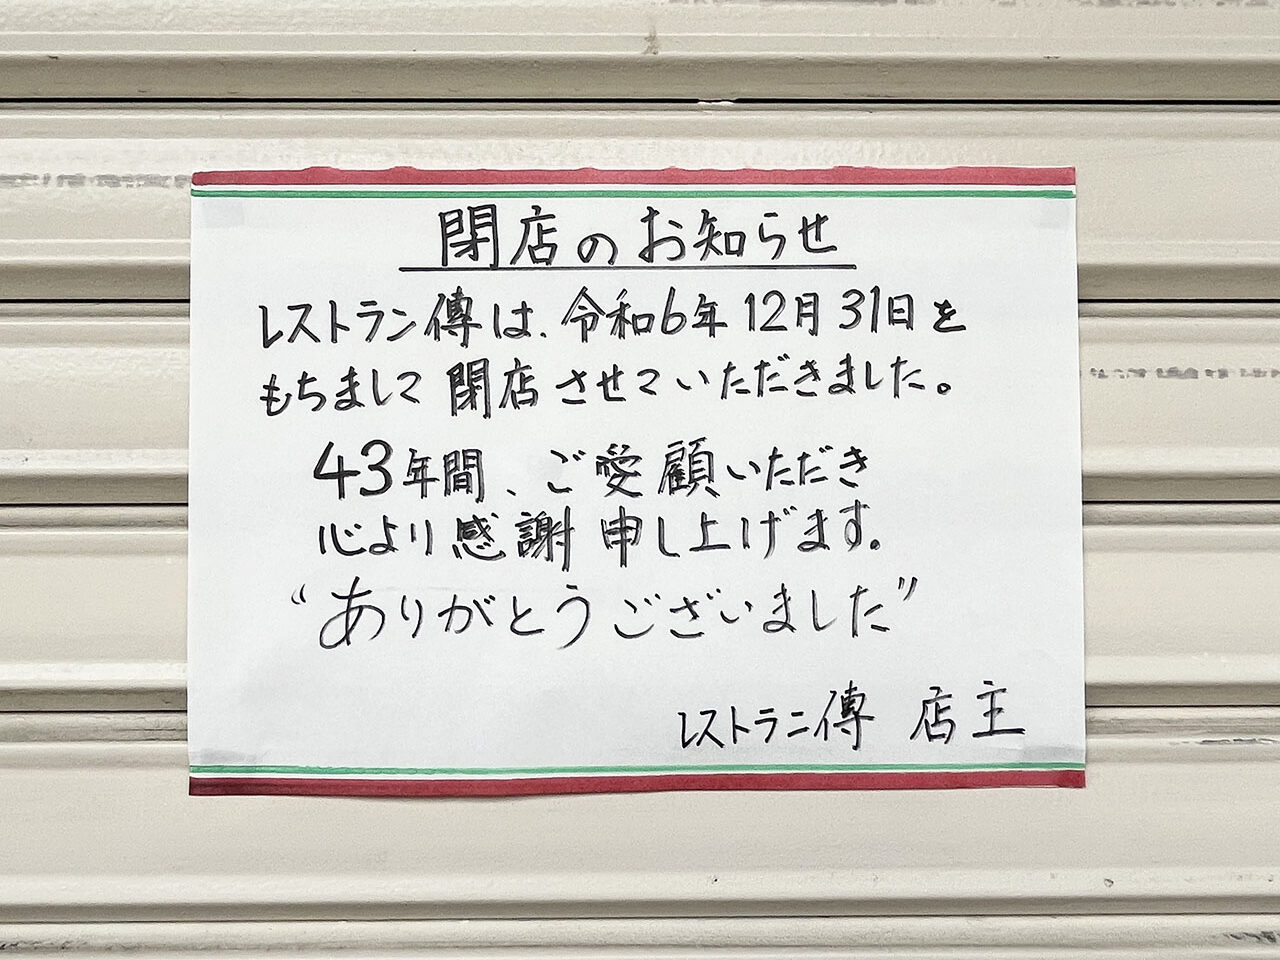 閉店のお知らせ
レストラン傳は、令和6年12月31日を
もちまして閉店させていただきました。
43年間、ご愛顧いただき
心より感謝申し上げます。
“ありがとうございました”
レストラン傳 店主